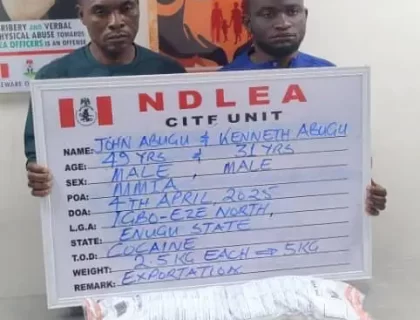 BRIBERY AND VERBAL
PHYSICAL ABUSE TOWARDS
OFFICERS IS AN OFFENSE
BEWARE
NDLEA
CITF UNIT
NAME: JOHN ABUGU & KENNETH ABUGU
AGE: 49 YRS & 31 YRS
SEX: MALE, MALE
POA: MMIA
DOA: 4TH APRIL, 2025
L.G.A: IGBO-EZE NORTH,
STATE: ENUGU STATE
T.O.D: COCAINE
WEIGHT: 2.5KG EACH ⇒ 5KG
REMARK: EXPORTATION